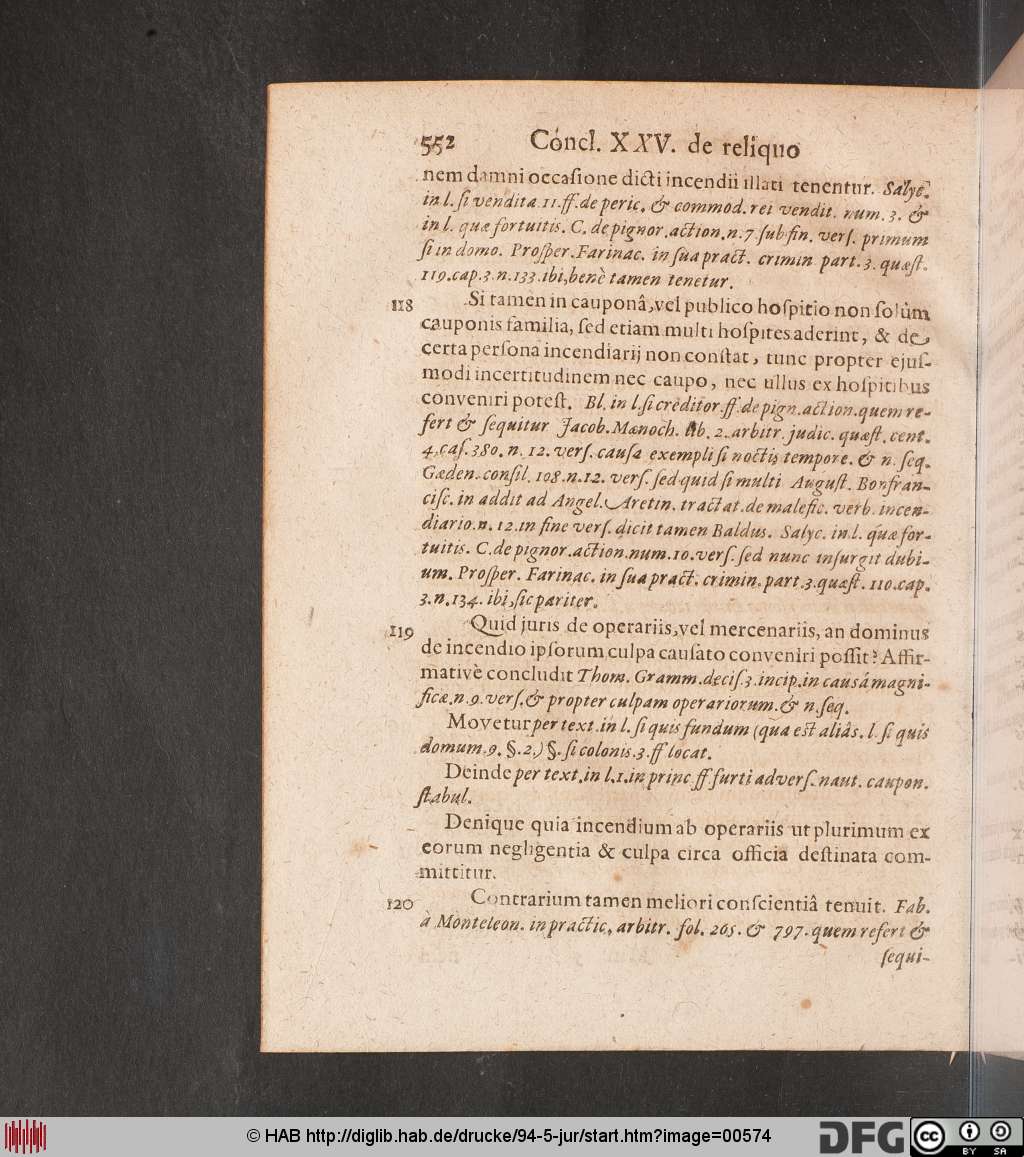 552 Concl. XXV. de reliquo
nem damni occaſione dicti incendii illati tenentur. Salyc.
in l. ſi vendita 11. ff. de peric. & commod. rei vendit. num. 3. &
in l. quæ fortuitis. C. de pignor. action. n. 7. ſub fin. verſ. primum
ſi in domo. Proſper. Farinac. in ſua pract. crimin part. 3. quæſt.
119. cap. 3. n. 133. ibi, benè tamen tenetur.
118 Si tamen in cauponâ, vel publico hoſpitio non ſolùm
cauponis familia, ſed etiam multi hoſpites aderint, & de
certa perſona incendiarij non conſtat, tunc propter ejuſ-
modi incertitudinem nec caupo, nec ullus ex hoſpitibus
conveniri poteſt. Bl. in l. ſi creditor. ff. de pign. action. quem re-
fert & ſequitur Jacob. Mænoch. lib. 2. arbitr. judic. quæſt. cent.
4. caſ. 380. n. 12. verſ. cauſa exempli ſi noctis tempore. & n. ſeq.
Gæden. conſil. 108. n. 12. verſ. ſed quid ſi multi Auguſt. Bonfran-
ciſc. in addit ad Angel. Aretin. tractat. de malefic. verb. incen-
diario. n. 12. in fine verſ. dicit tamen Baldus. Salyc. in l. quæ for-
tuitis. C. de pignor. action. num. 10. verſ. ſed nunc inſurgit dubi-
um. Proſper. Farinac. in ſua pract. crimin. part. 3. quæſt. 110. cap.
3. n. 134. ibi, ſic pariter.
119 Quid juris de operariis, vel mercenariis, an dominus
de incendio ipſorum culpa cauſato conveniri poſſit? Affir-
mativè concludit Thom. Gramm. deciſ. 3. incip. in causâ magni-
ficæ. n. 9. verſ. & propter culpam operariorum. & n. ſeq.
Movetur per text. in l. ſi quis fundum (qua eſt aliâs. l. ſi quis
domum. 9. §. 2.) §. ſi colonis. 3. ff locat.
Deinde per text. in l. 1. in princ. ff. furti adverſ. naut. caupon.
ſtabul.
Denique quia incendium ab operariis ut plurimum ex
eorum negligentia & culpa circa officia deſtinata com-
mittitur.
120 Contrarium tamen meliori conſcientiâ tenuit. Fab.
à Monteleon. in practic. arbitr. fol. 205. & 797. quem refert &
ſequi-
© HAB http://diglib.hab.de/drucke/94-5-jur/start.htm?image=00574
DFG cc BY SA